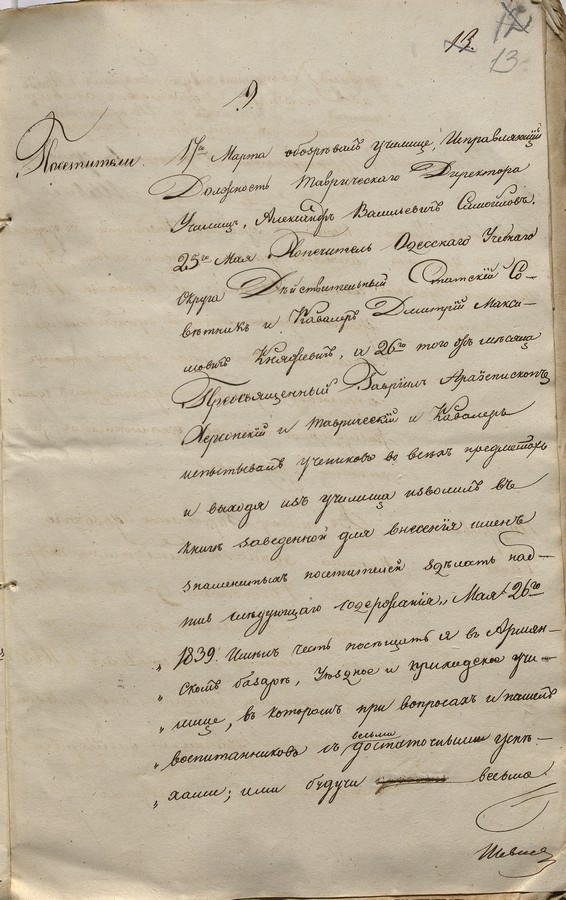 12
13.
13
9.
Посетители. 17го Марта обозрѣвалъ училище, Исправляющій
Должность Таврическаго Директора
Училищъ, Александръ Васильевичъ Самойловъ.
25го Мая Попечитель Одесскаго Учебнаго
Округа Дѣйствительный Статскій Со-
вѣтникъ и Кавалеръ Дмитрій Макси-
мовичъ Княжевичъ, а 26го того жъ мѣсяца
Преосвященный Гавріилъ Архіепископъ
Херсонскій и Таврическій и Кавалеръ
испытывалъ учениковъ во всѣхъ предметахъ
и выходя изъ училища изволилъ въ
книгѣ заведенной для внесенія именъ
знаменитыхъ посетителей здѣлать над-
пись слѣдующаго содержанія „Мая 26го
„ 1839. Имѣлъ честь посѣщать я въ Армян-
„ скомъ базарѣ, Уѣздное и приходское учи-
„ лище, въ которомъ при вопросахъ и нашелъ
„ воспитанниковъ съ весьма достаточными успѣ-
„ хами; ими будучи весьма